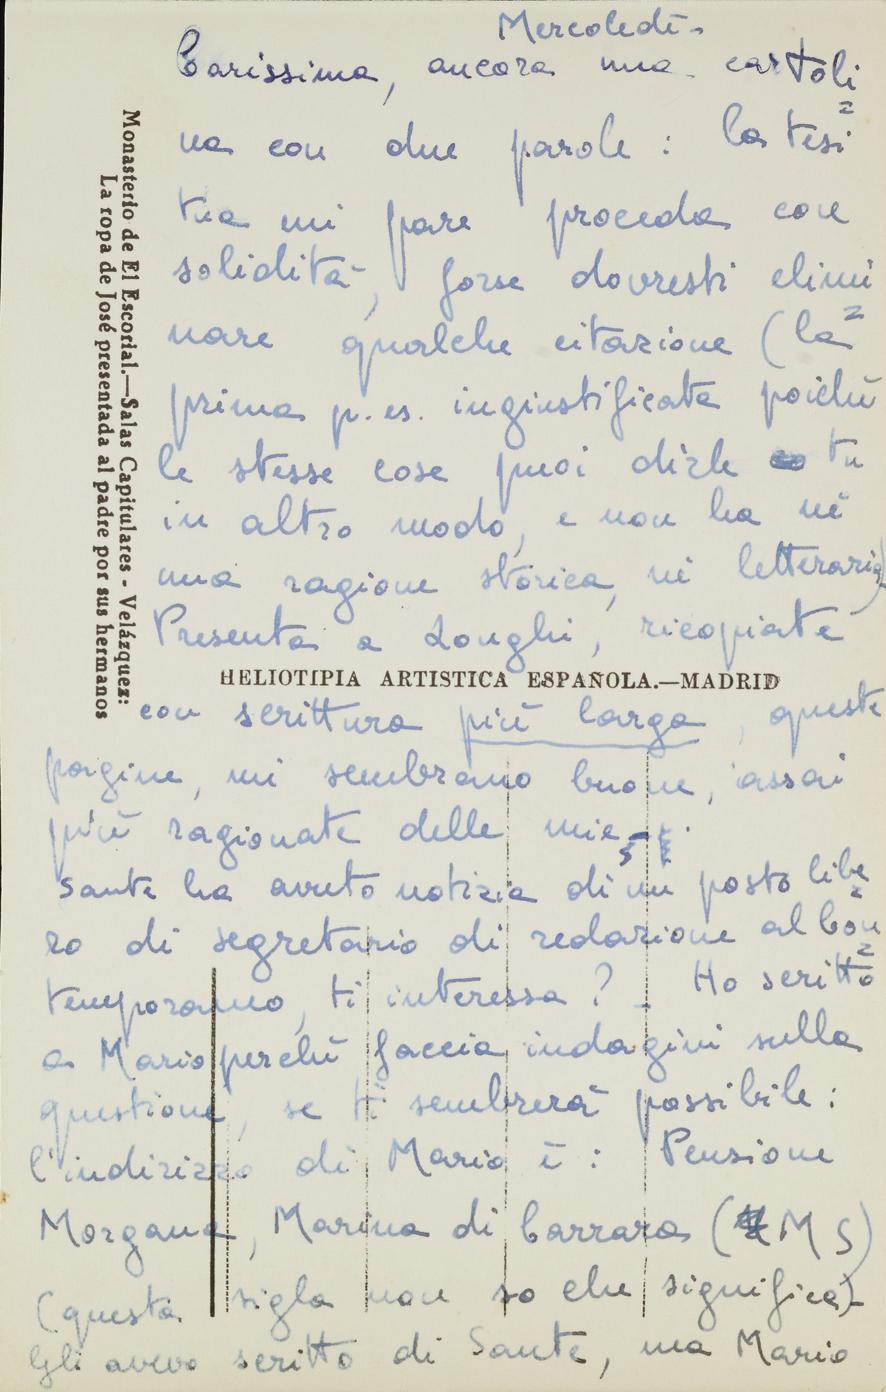 Mercoledì -
Carissima, ancora una cartoli=
na con due parole : la tesi
tua mi pare proceda con
solidità, forse dovresti elimi=
nare qualche citazione (la
prima p. es. ingiustificata poichè
le stesse cose puoi dirle tu
in altro modo, e non ha nè
una ragione storica, nè letteraria)
Presenta a Longhi, ricopiate
con scrittura più larga, queste
pagine, mi sembrano buone, assai
più ragionate delle mie.
Sante ha avuto notizia di un posto libe=
ro di segretario di redazione al Con=
temporaneo, ti interessa? - Ho scritto
a Mario perchè faccia indagini sulla
questione, se ti sembrerà possibile :
l'indirizzo di Mario è : Pensione
Morgana, Marina di Carrara (MS)
(questa sigla non so che significa)-
Gli avevo scritto di Sante, ma Mario
Monasterio de El Escorial.—Salas Capitulares - Velázquez:
La ropa de José presentada al padre por sus hermanos
HELIOTIPIA ARTISTICA ESPAÑOLA.—MADRID